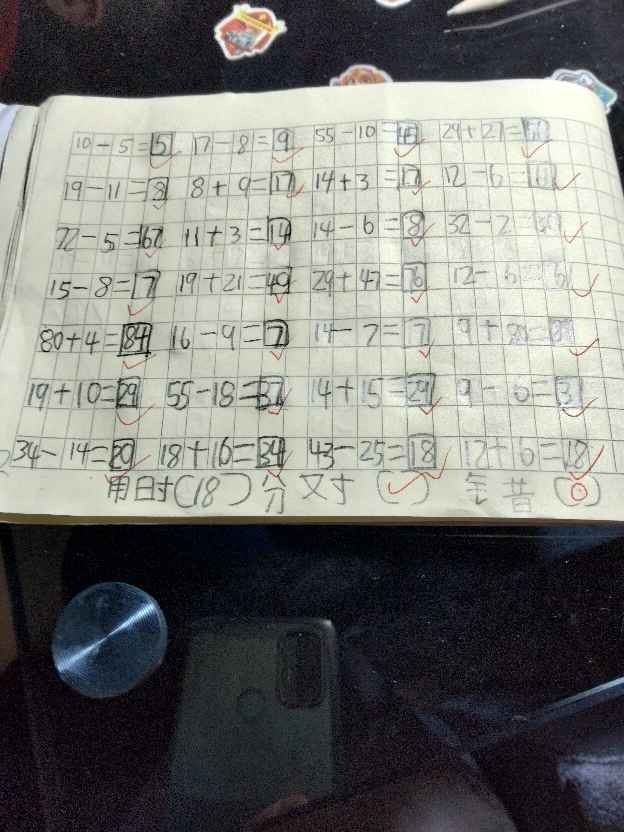 10-5=5 17-8=9 55-10=45 29+21=50
19-11=8 8+9=17 14+3=17 12-6=
72-5=67 11+3=14 14-6=8 32-2=30
15-8=7 19+21=40 29+47=76 12-6=6
80+4=84 16-9=7 14-7=7 9+80=89
19+10=29 55-18=37 14+15=29 9-6=3
34-14=20 18+16=34 43-25=18 12+6=18
用时(18)分 对(✓) 错(0)